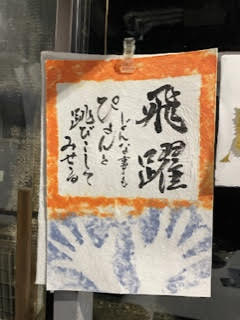 飛躍
どんな事も
ぴょんと
跳びこして
みせる